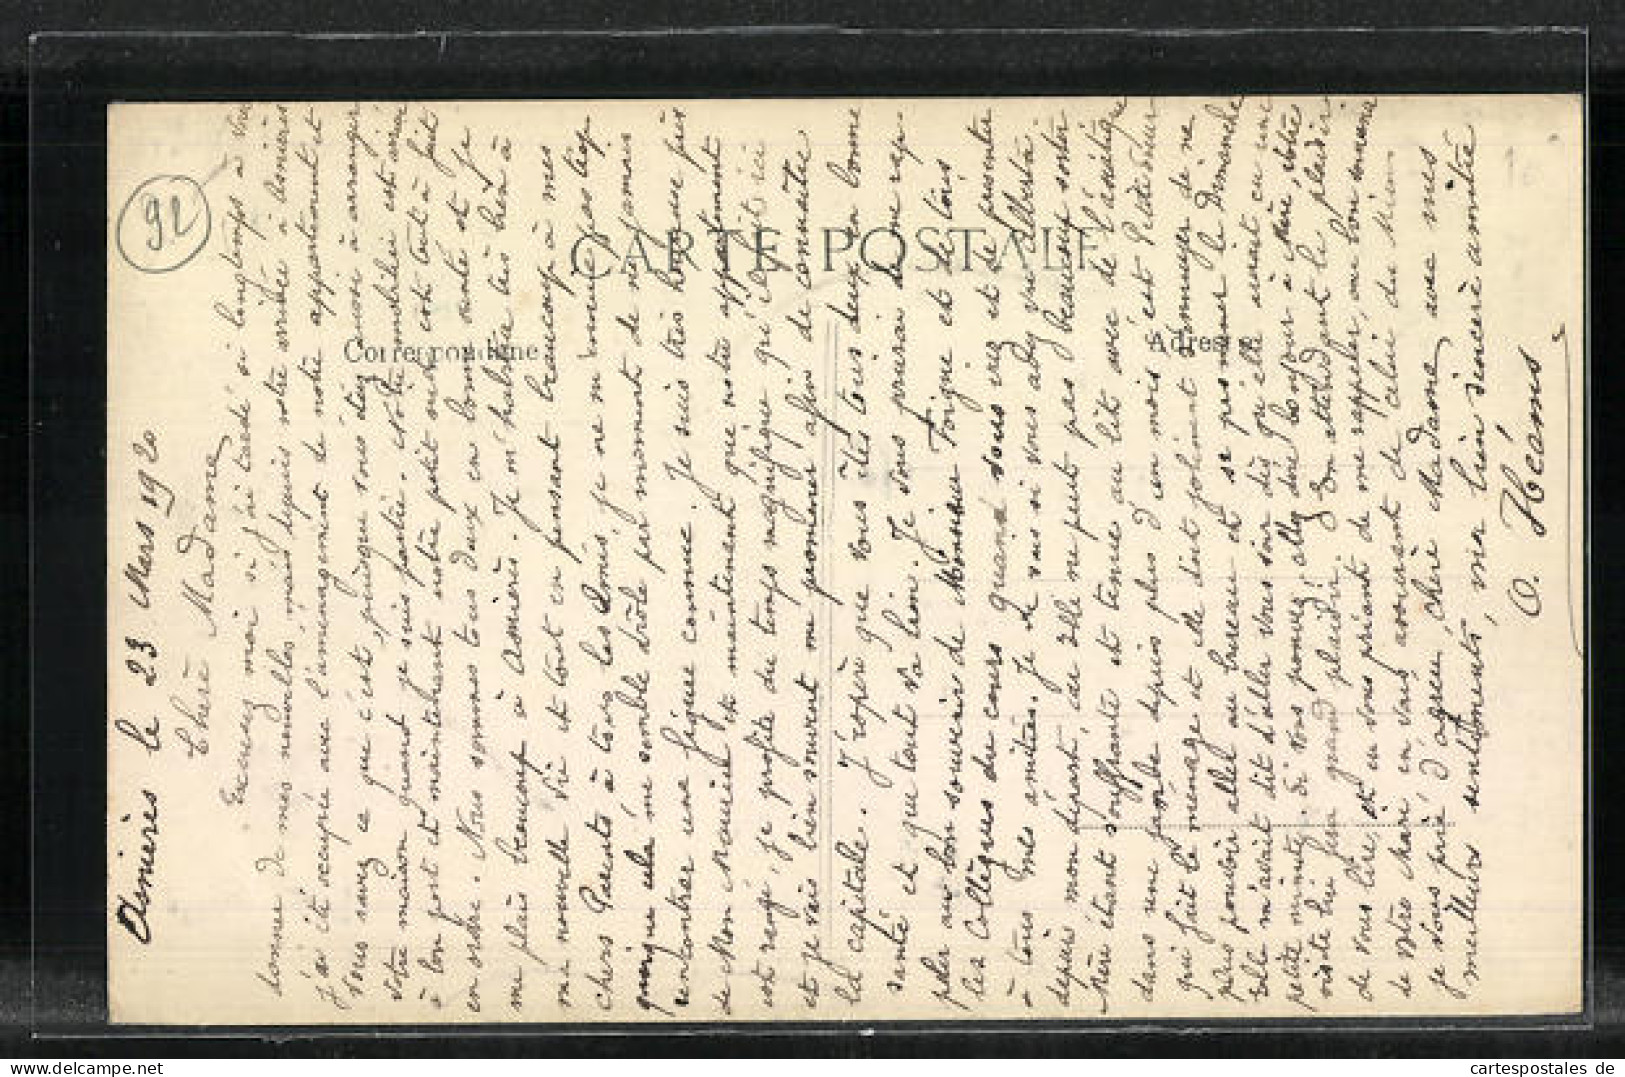 92
CARTE POSTALE
Correspondance
Adresse
Asnières le 23 Mars 1920
Chère Madame
Excusez moi si j'ai tardé si longtemps à vous
donner de mes nouvelles mais depuis notre arrivée à Asnières
j'ai été occupée avec l'aménagement de notre appartement et
vous savez ce que c'est puisque vous étiez aussi à arranger
votre maison quand je suis partie. Notre mobilier est arrivé
à bon port et maintenant notre petit nid est tout à fait
en ordre. Nous sommes tous deux en bonne santé et je
me plais beaucoup à Asnières. Je m'habitue très bien à
ma nouvelle vie et tout en pensant beaucoup à mes
chers Parents à tous les Amis, je ne m'ennuie pas trop
quoique cela me semble drôle par moment de ne jamais
rencontrer une figure connue. Je suis très heureuse près
de Mon Maurice et maintenant que notre appartement
est rangé, je profite du temps magnifique qu'il fait ici
et je vais bien souvent me promener afin de connaître
la capitale. J'espère que vous êtes tous deux en bonne
santé et que tout va bien. Je vous prierai de me rap-
peler au bon souvenir de Monsieur Toigne et de tous
les Collègues du cours quand vous irez et de présenter
à tous mes amitiés. Je ne sais si vous avez vu Alberta
depuis mon départ, car elle ne peut pas beaucoup sortir
Mère étant souffrante et tenue au lit avec de l'
dans une jambe depuis plus d'un mois, c'est Petite Sœur
qui fait le ménage et elle doit joliment s'ennuyer de ne
pas pouvoir aller au bureau et se promener le Dimanche
Elle m'avait dit d'aller vous voir dès qu'elle aurait eu une
petite minute. Si vous pouvez, allez dire bonjour à Mère, votre
visite lui fera grand plaisir. En attendant le plaisir
de vous lire, et en vous priant de me rappeler, au bon souvenir
de votre Mari en vous assurant de celui du Mien
je vous prie d'agréer, chère Madame avec mes
meilleurs sentiments, ma bien sincère amitié